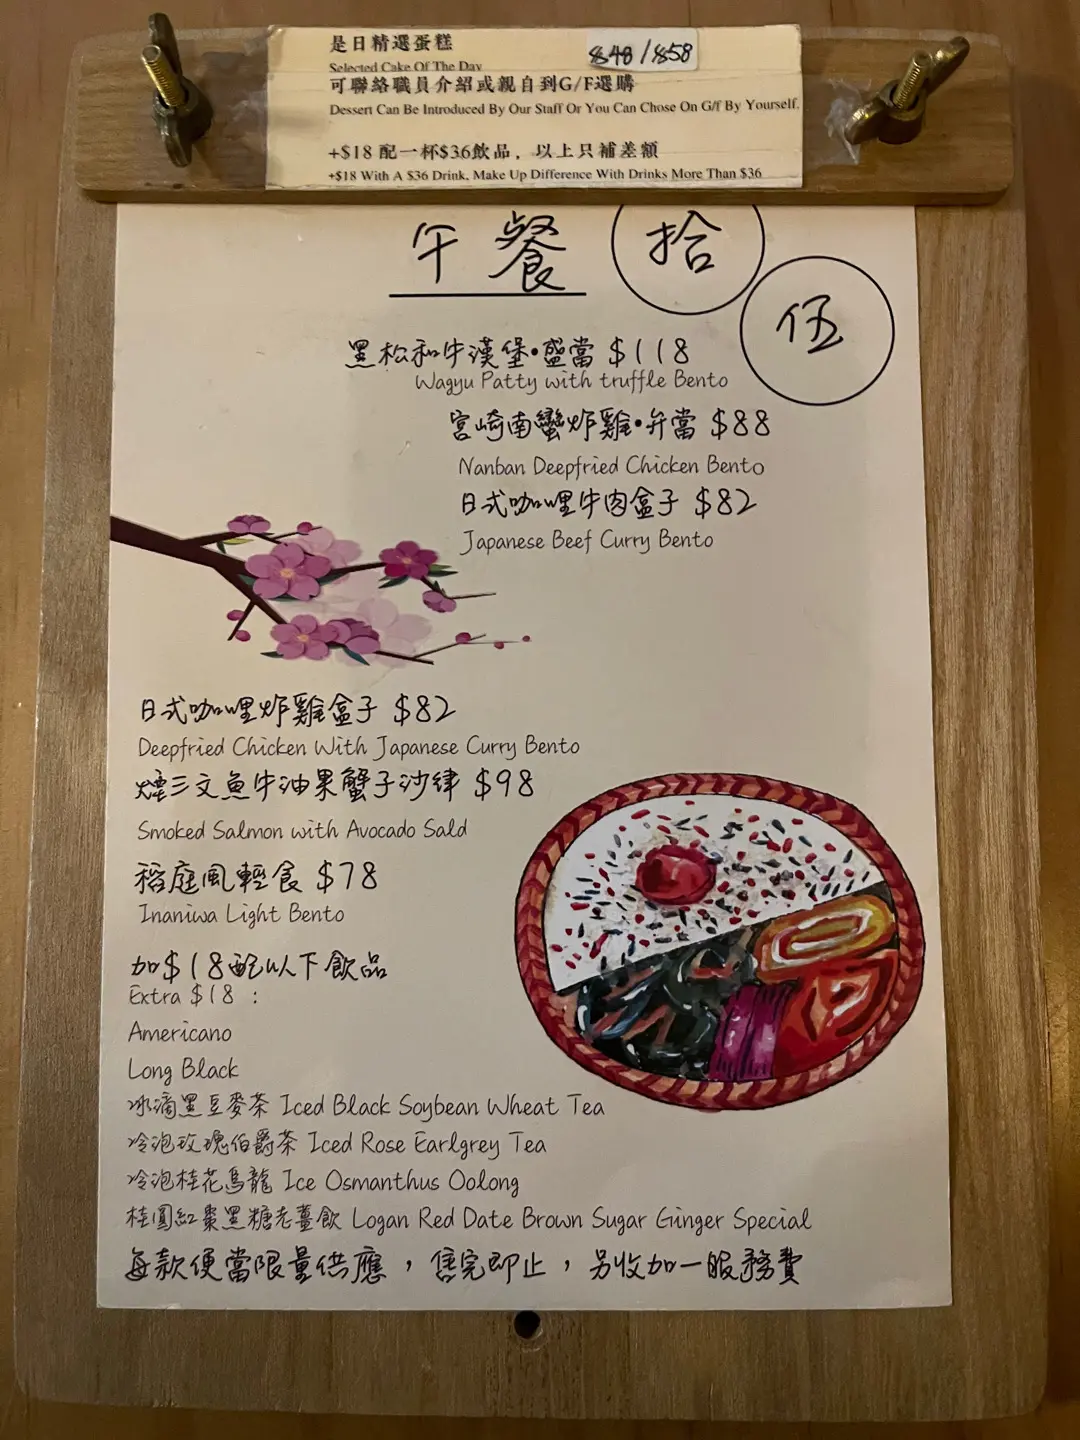 是日精選蛋糕 $48/$58
Selected Cake Of The Day
可聯絡職員介紹或親自到G/F選購
Dessert Can Be Introduced By Our Staff Or You Can Chose On G/f By Yourself.
+$18 配一杯$36飲品，以上只補差額
+$18 With A $36 Drink, Make Up Difference With Drinks More Than $36
午餐
拾
伍
黑松和牛漢堡•盛當 $118
Wagyu Patty with truffle Bento
宮崎南蠻炸雞•弁當 $88
Nanban Deepfried Chicken Bento
日式咖哩牛肉盒子 $82
Japanese Beef Curry Bento
日式咖哩炸雞盒子 $82
Deepfried Chicken With Japanese Curry Bento
煙三文魚牛油果蟹子沙律 $98
Smoked Salmon with Avocado Sald
稻庭風輕食 $78
Inaniwa Light Bento
加$18配以下飲品
Extra $18 :
Americano
Long Black
冰滴黑豆麥茶 Iced Black Soybean Wheat Tea
冷泡玫瑰伯爵茶 Iced Rose Earlgrey Tea
冷泡桂花烏龍 Ice Osmanthus Oolong
桂圓紅棗黑糖老薑飲 Logan Red Date Brown Sugar Ginger Special
每款便當限量供應，售完即止，另收加一服務費